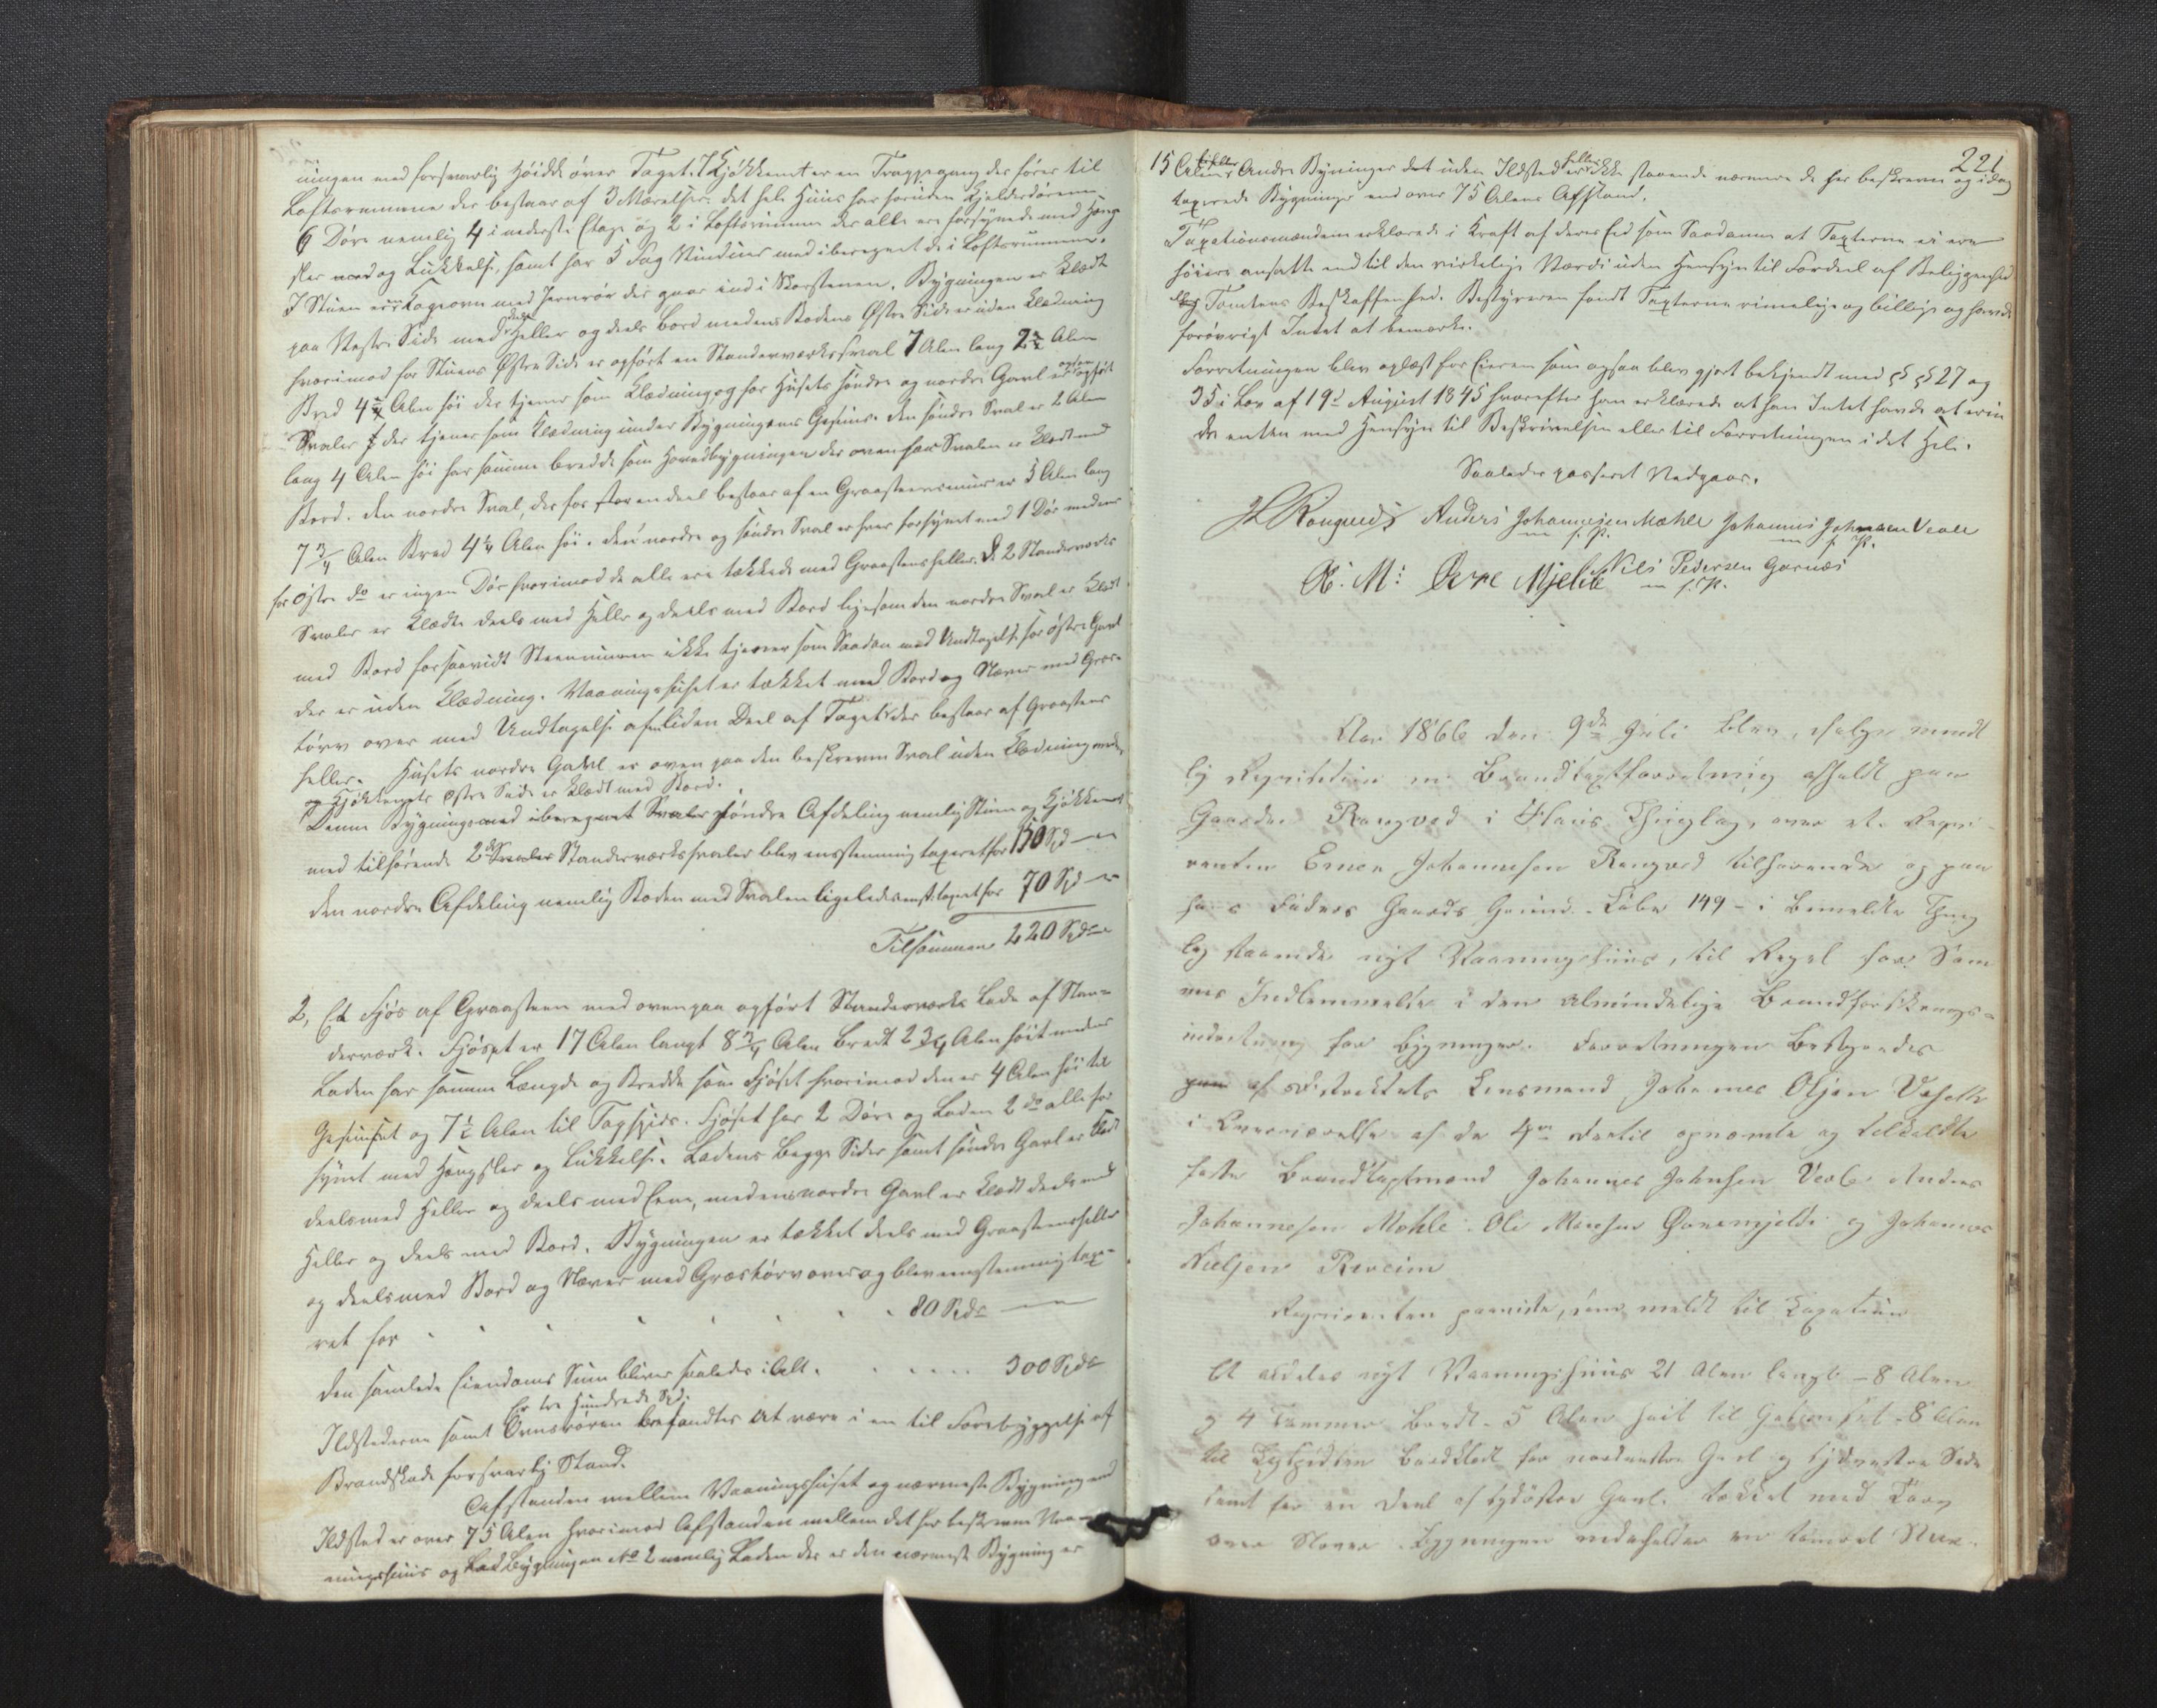 ningen med forsvarlig Høide over Taget. I Kjøkkenet er en Trappegang der fører til
Loftsrummene der bestaar af 3 Værelser. det hele Huus har foruden Kjelderdøren
6 Døre nemlig 4 i nederste Etage og 2 i Loftsrummene der alle ere forsynede med Hæng-
sler med og Lukkelse, samt har 5 Fag Vinduer med iberegnet de i Loftsrummene.
I Stuen er en Kogeovn med Jernrør der gaar ind i Skorstenen. Bygningen er klædt
paa Vestre Side med deels Heller og deels Bord medens Bodens Østre Side er uden Klædning
hvorimod for Stuens Østre Side er opført en Standerværkssval 7 Alen lang 2 1/2 Alen
Bred 4 1/4 Alen høi der tjener som Klædning, og for Husets søndre og nordre Gavl er opført
Svaler der tjener som Klædning under Bygningens Gesims. den søndre Sval er 2 Alen
lang 4 Alen høi har samme bredde som Hovedbygningen der ovenfor Svalen er klædt med
Bord. den nordre Sval, der for stor en deel bestaar af en Graasteensmuur er 5 Alen lang
7 3/4 Alen Bred 4 1/4 Alen høi. den nordre og søndre Sval er hver forsynet med 1 Dør medens
for østre do er ingen Dør hvorimod de alle ere tækkede med Graasteensheller. De 2 Standerværks
Svaler er klædte deels med Heller og deels med Bord ligesom den nordre Sval er klædt
med Bord forsaavidt Steenmuren ikke tjener som Saadan med Undtagelse for østre Gavl
der er uden Klædning. Vaaningshuset er tækket med Bord og Næver med Græs-
tørv over med Undtagelse af en liden Deel af Taget der bestaar af Graasteens
heller. Husets nordre Gavl er oven paa den beskrevne Sval uden Klædning
og Kjøkkenets østre Side er klædt med Bord.
Denne Bygnings søndre Afdeling nemlig Stuen og Kjøkkenet
med tilhørende 2de Standerværkssvaler blev eenstemmig taxeret for 150 Spd
den nordre Afdeling nemlig Boden med Svalen ligeledes eenst. taxeret for 70 Spd
Tilsammen 220 Spd
2, Et Fjøs af Graasteen med ovenpaa opført Standerværks Lade af Stan-
derværk. Fjøset er 17 Alen langt 8 3/4 Alen Bredt 2 3/4 Alen høit medens
Laden har samme Længde og Bredde som Fjøset hvorimod den er 4 Alen høi til
Gesimset og 7 1/2 Alen til Tagspids. Fjøset har 2 Døre og Laden 2 do alle for-
synet med Hængsler og Lukkelse. Ladens Begge Sider samt søndre Gavl er klædt
deels med Heller og deels med Ener, medens nordre Gavl er klædt deels med
Heller og deels med Bord. Bygningen er tækket deels med Graasteensheller
og deels med Bord og Næver med Græstørv over og blev eenstemmig taxe-
ret for 80 Spd
den samlede Eiendoms Sum bliver saaledes i Alt. 300 Spd
Er tre Hundrede Spd.
Ildstederne samt Ovnsrøren befandtes at være i en til Forebyggelse af
Brandskade forsvarlig Stand.
Afstanden mellem Vaaningshuset og nærmeste Bygning med
Ildsted er over 75 Alen hvorimod Afstanden mellem det her beskrevne Vaa-
ningshuus og Bygningen No 2 nemlig Laden der er den nærmeste Bygning er
221
15 Alen Andre Bygninger det uden Ildsted heller ikke staaende nærmere de her beskrevne og idag
taxerede Bygninger end over 75 Alens Afstand.
Taxationsmændene erklærede i Kraft af deres Eed som Saadanne at Taxterne ei ere
høiere ansatte end til den virkelige Værdi uden Hensyn til Fordeel af Beliggenhed
og Tomtens Beskaffenhed. Bestyreren fandt Taxterne rimelige og billige og havde
forøvrigt Intet at bemærke.
Forretningen blev oplæst for Eieren som ogsaa blev gjort bekjendt med §§ 27 og
35 i Lov af 19d August 1845 hvorefter han erklærede at han Intet havde at erin-
dre enten med Hensyn til Beskrivelsen eller til Forretningen i det Hele.
Saaledes passeret Vedgaaes.
H Rongved Anders Johannesen Mæhle Johannes Johnsen Veole
m f. P. m f. P.
O. M: Øvre Mjelde Nils Pedersen Garnæs
m f. P.
Aar 1866 den 9de Juli blev, ifølge mundt
lig Reqvisition en Brandtaxtforretning afholdt paa
Gaarden Rongved i Haus Thinglag, over et Reqvi-
renten Einer Johannesen Rongved tilhørende og paa
hans Fædres Gaards Grund Løbe 149 – i bemeldte Thing
lag staaende nyt Vaaningshuus, til Regel for Sam
mes Indlemmelse i den almindelige Brandforsikrings-
indretning for Bygninger. Forretningen Bestyredes
af Distriktets Lensmand Johannes Olsen
i Overværelse af de 4re dertil opnævnte og tilkaldte
faste Brandtaxtmænd Johannes Johnsen Veole Anders
Johannesen Mæhle Ole Monsen Øvremjelde og Johannes
Nielsen
Reqvirenten paaviste, som meldt til Taxation
Et aldeles nyt Vaaningshuus 21 Alen langt – 8 Alen
og 4 Tommer Bredt – 5 Alen høit til Gesimset – 8 Alen
til Bordklædt for nordvestre Gavl og sydvestre Side
samt for en Deel af sydøstre Gavl. tækket med Tørv
over Næver. Bygningen indeholder en tømret Stue